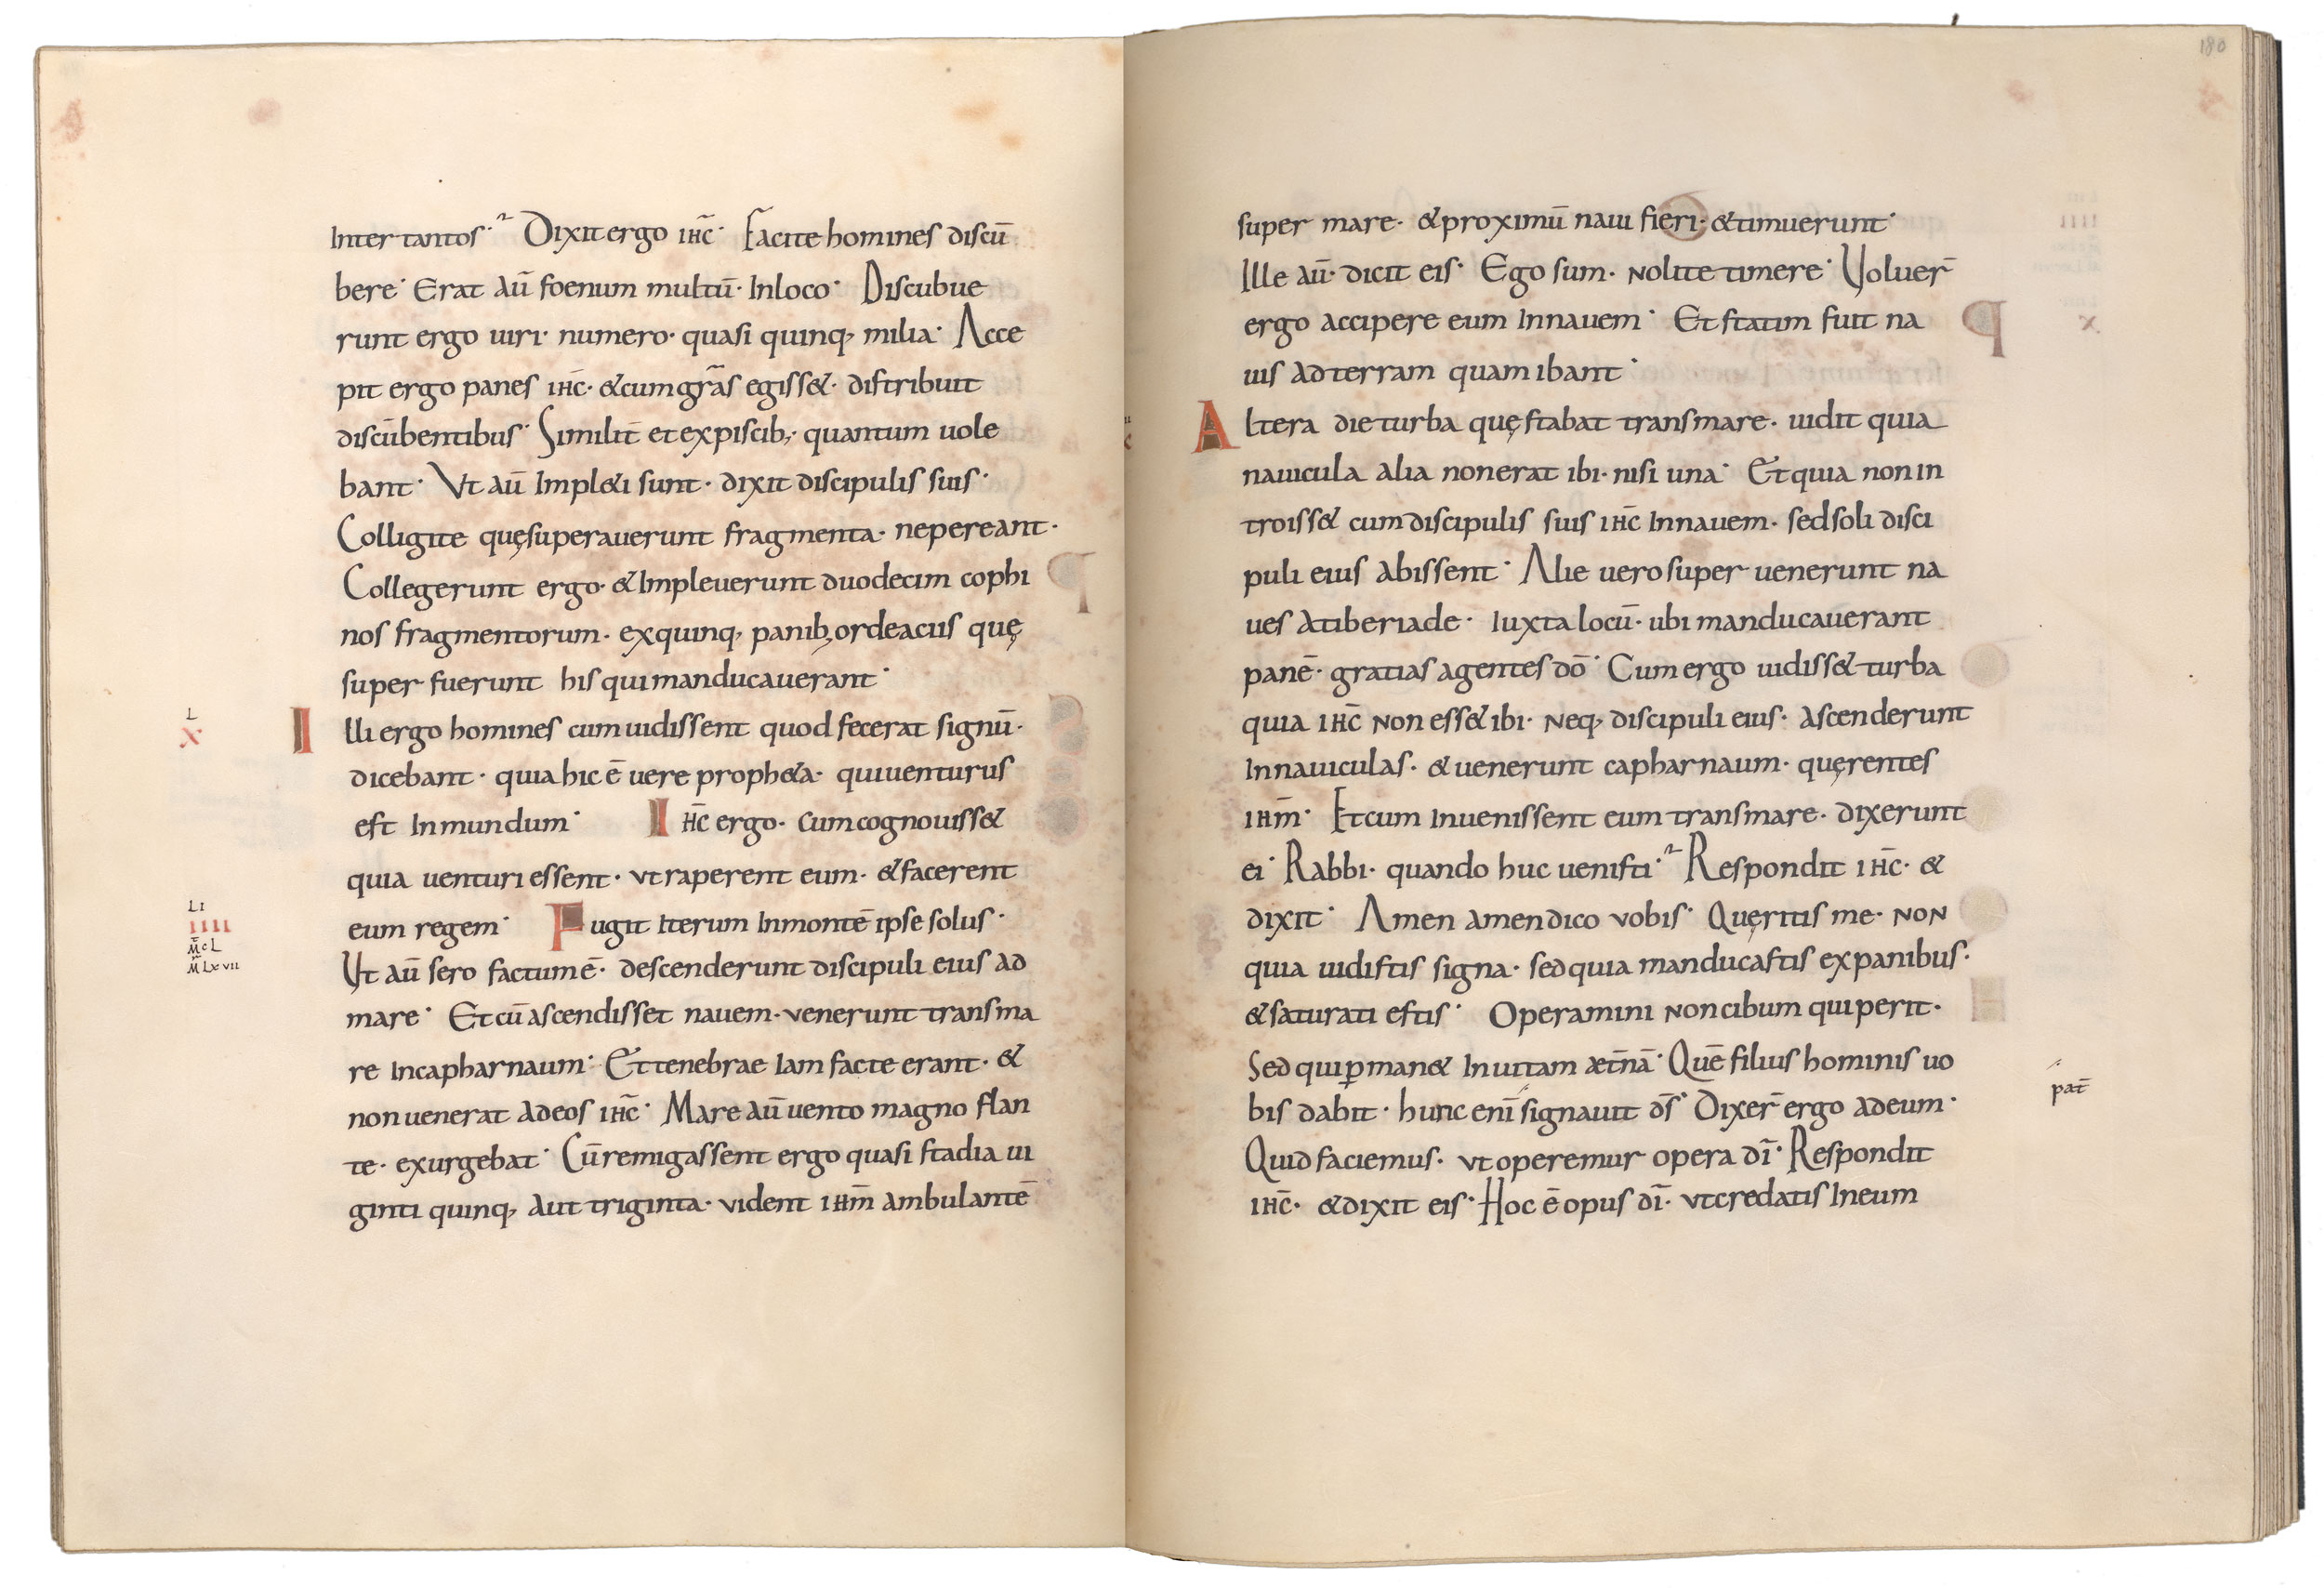 Inter tantos·̉ Dixit ergo ih̅c· Facite homines discū
bere· Erat aū foenum multū· Inloco· Discubue
runt ergo uiri· numero· quasi quinq, milia· Acce
pit ergo panes ih̅c· &cum gr̅as egiss&· distribuit
discūbentibus· Similit̅ et ex piscib;· quantum uole
bant· Vt aū Impl&i sunt· dixit discipulis suis·
Colligite quęsuperauerunt fragmenta· nepereant·
Collegerunt ergo· &Impleuerunt duodecim cophi
nos fragmentorum· exquinq, panib; ordeaciis quę
super fuerunt his qui manducauerant·
L
X
Illi ergo homines cum uidissent quod fecerat signū·
dicebant· quia hic ē uere proph&a· qui uenturus
est In mundum· Ih̅c ergo· cum cognouiss&
quia uenturi essent· vt raperent eum· &facerent
LI
IIII
M̅c L
M̅ Lxvii
eum regem· Fugit Iterum Inmontē ipse solus·
Vt aū sero factum ē· descenderunt discipuli eius ad
mare· Et cū ascendisset nauem· venerunt trans ma
re Incapharnaum· Et tenebrae Iam facte erant· &
non uenerat adeos ih̅c· Mare aū uento magno flan
te· exurgebat· Cū remigassent ergo quasi stadia ui
ginti quinq, aut triginta· vident ih̅m ambulantē
180
super mare· &proximū naui fieri· &timuerunt·
Ille aū· dicit eis· Ego sum· nolite timere· Voluer̅
ergo accipere eum Innauem· Et statim fuit na
uis ad terram quam ibant·
Altera die turba quę stabat trans mare· uidit quia
nauicula alia non erat ibi· nisi una· Et quia non in
troiss& cum discipulis suis ih̅c Innauem· sed soli disci
puli eius abissent· Alie uero super uenerunt na
ues atiberiade· Iuxta locū· ubi manducauerant
panē· gratias agentes dō· Cum ergo uidiss& turba
quia ih̅c non ess& ibi· neq, discipuli eius· ascenderunt
Innauiculas· &uenerunt capharnaum· quęrentes
ih̅m· Et cum Inuenissent eum trans mare· dixerunt
ei· Rabbi· quando huc uenisti·̉ Respondit ih̅c· &
dixit· Amen amen dico vobis· Quęritis me· non
quia uidistis signa· sed quia manducastis expanibus·
&saturati estis· Operamini non cibum qui perit·
Sed qui ꝑman& In uitam æt̅nā· Quē filius hominis uo
pat̅
bis dabit· hunc enī signauit ds̅· Dixer̅ ergo adeum·
Quid faciemus· vt operemur opera dī· Respondit
ih̅c· &dixit eis· Hoc ē opus dī· vt credatis Ineum